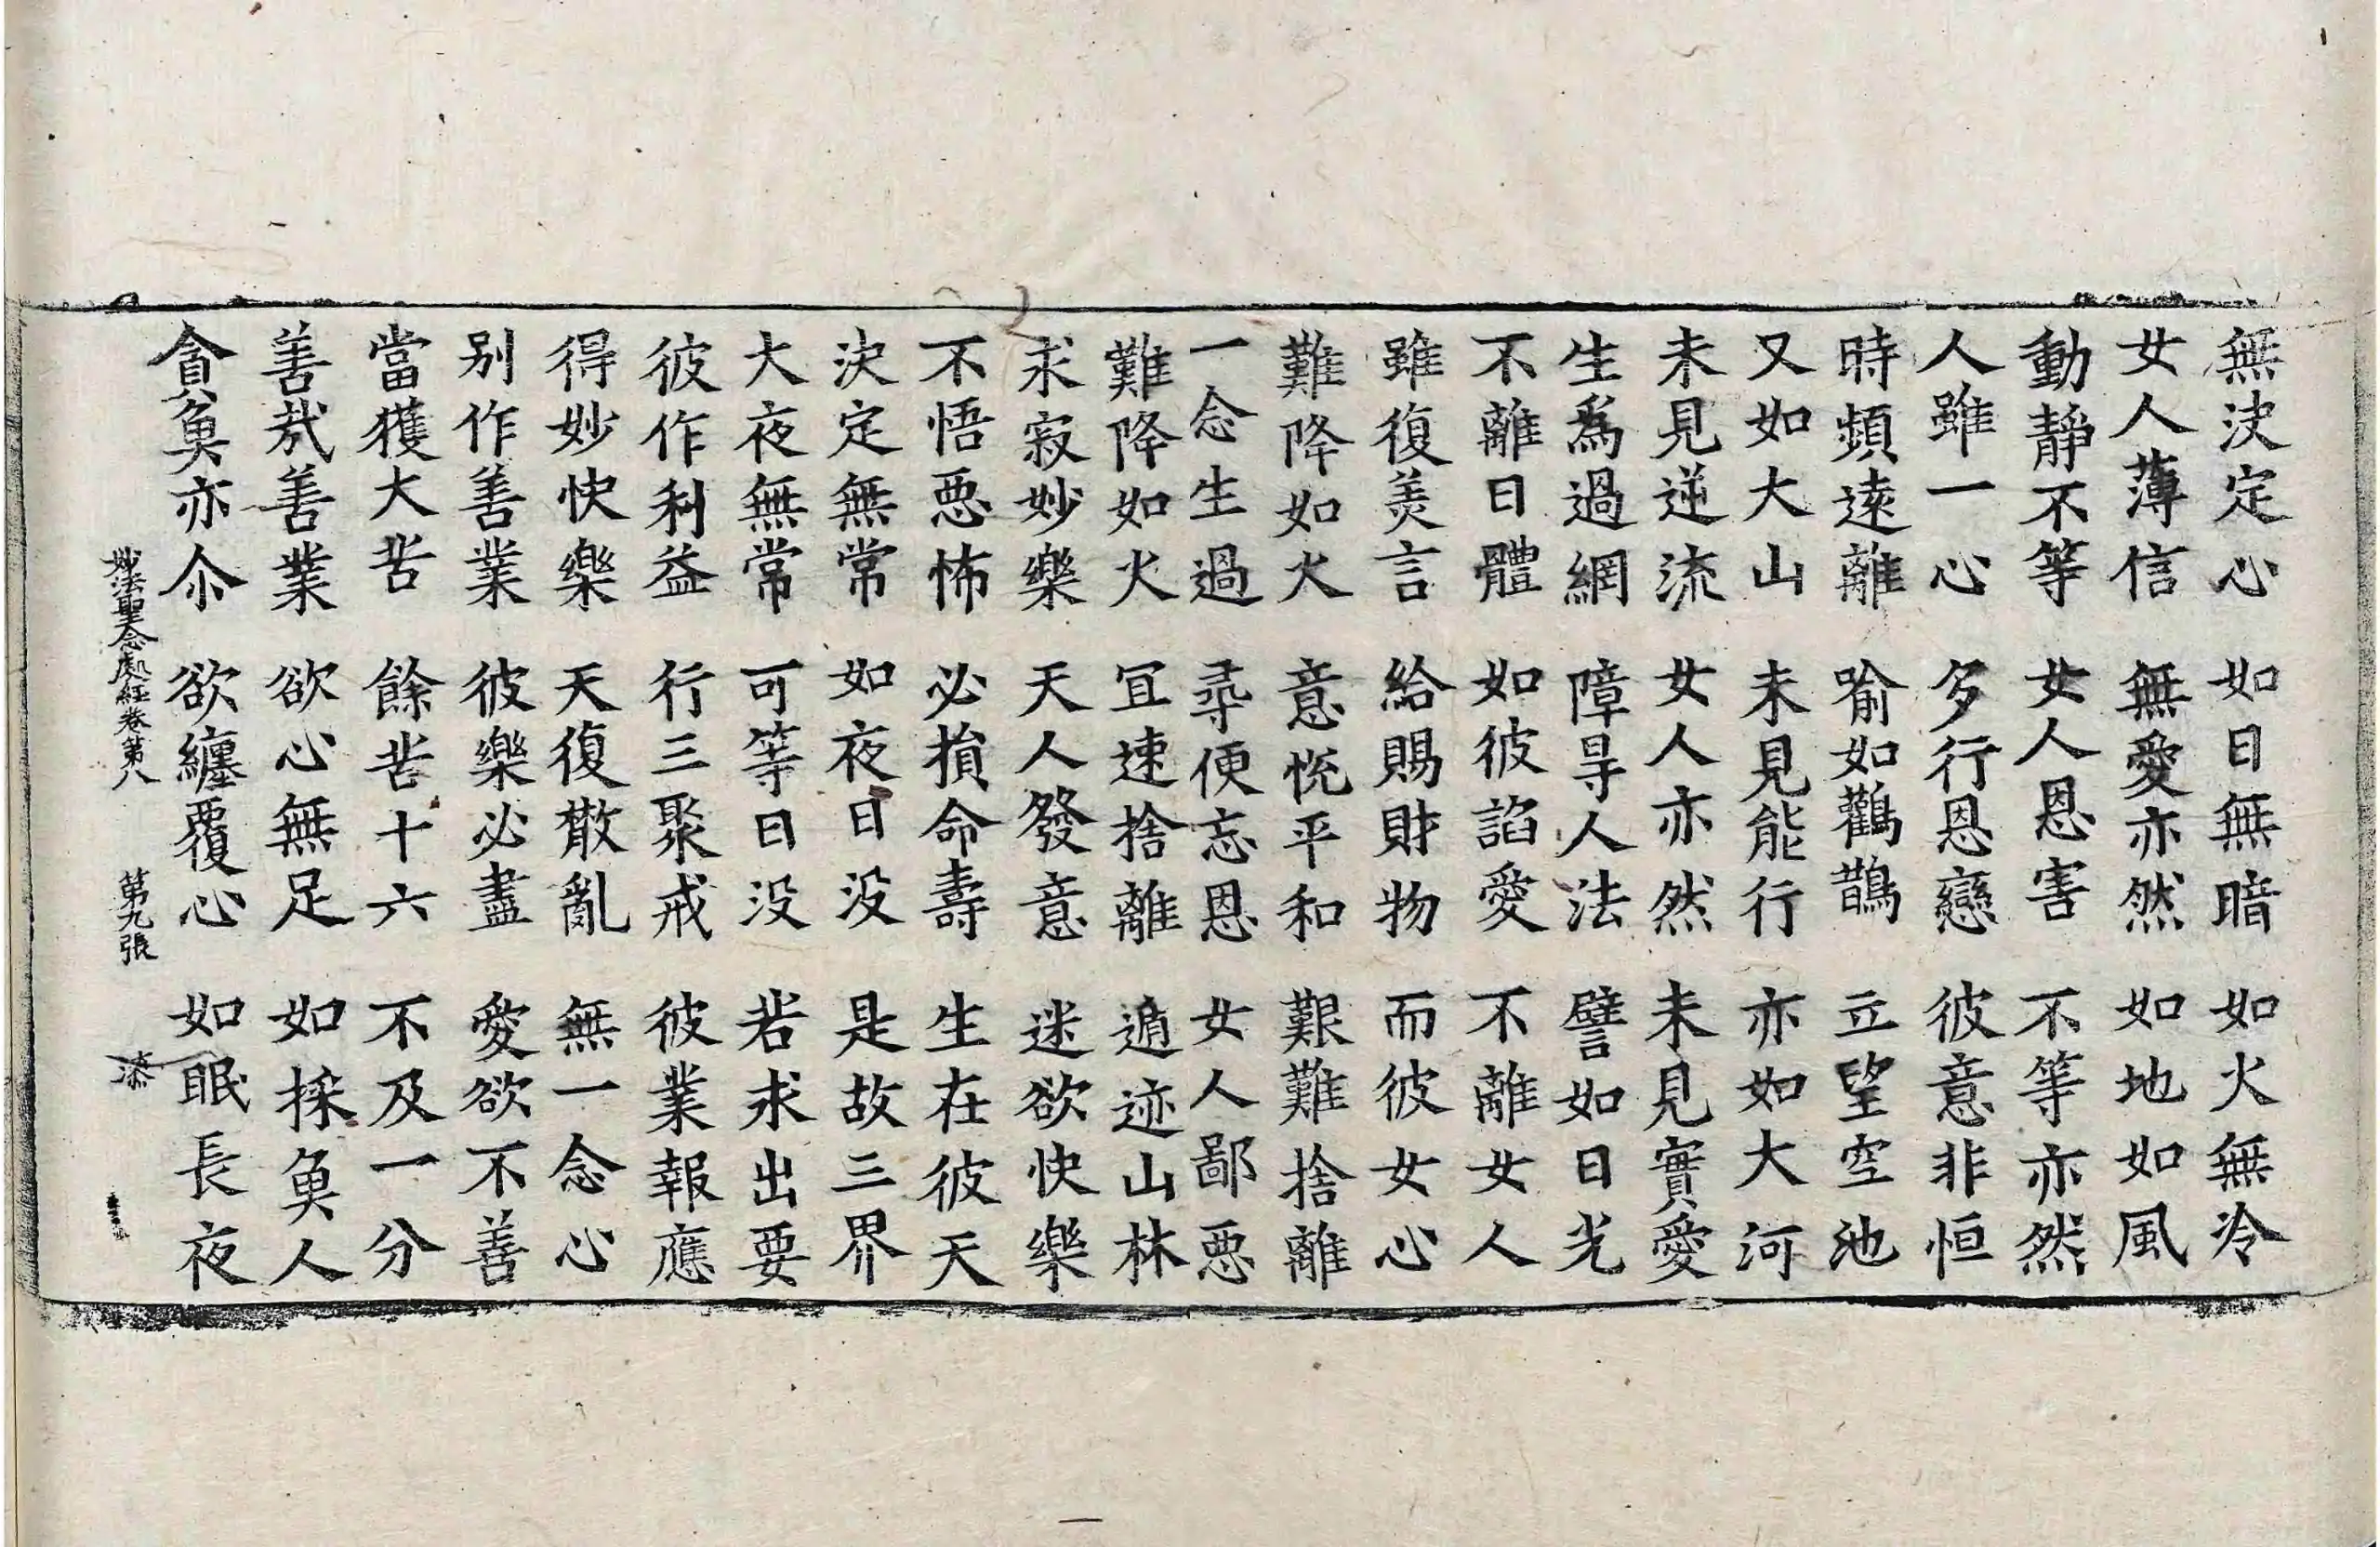 無決定心　如日無暗　如火無冷
女人薄信　無愛亦然　如地如風
動靜不等　女人恩害　不等亦然
人雖一心　多行恩戀　彼意非恒
時頻逺離　喻如鸛鵲　立望空池
又如大山　未見能行　亦如大河
未見逆流　女人亦然　未見實愛
生爲過網　障㝵人法　譬如日光
不離日體　如彼諂愛　不離女人
雖復美言　給賜財物　而彼女心
難降如火　意恱平和　艱難捨離
一念生過　尋便忘恩　女人鄙惡
難降如火　冝速捨離　遁迹山林
求寂妙樂　天人發意　迷欲快樂
不悟惡怖　必損命壽　生在彼天
決定無常　如夜日没　是故三界
大夜無常　可等日没　若求出要
彼作利益　行三聚戒　彼業報應
得妙快樂　天復散亂　無一念心
别作善業　彼樂必盡　愛欲不善
當獲大苦　餘苦十六　不及一分
善㢤善業　欲心無足　如採魚人
貪魚亦尒　欲纏覆心　如眠長夜
妙法聖念處經卷第八　第九張　漆